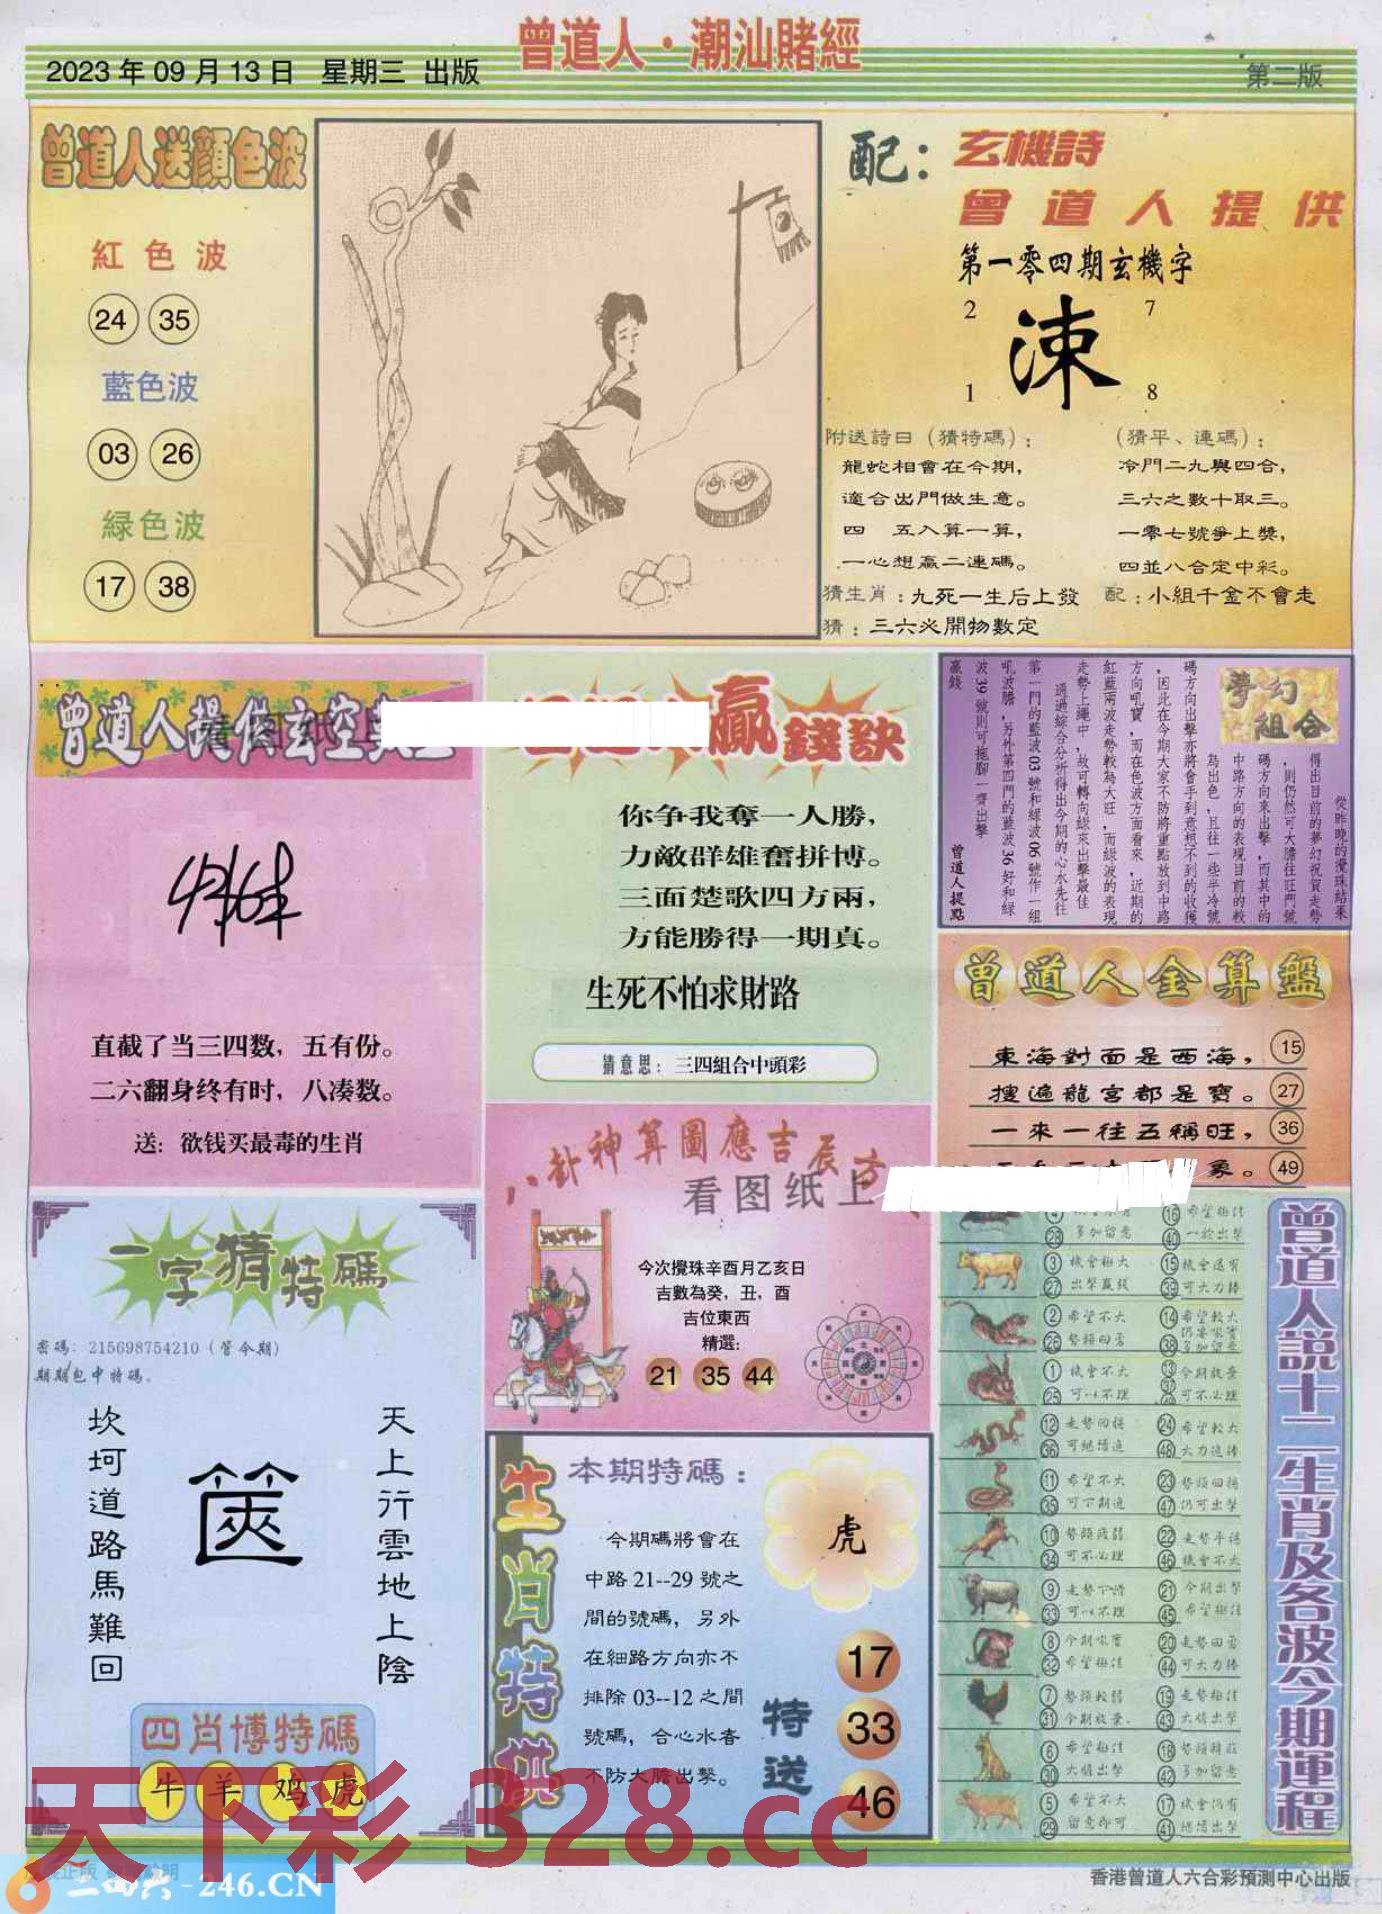 曾道人·潮汕賭經
2023年09月13日 星期三 出版
第二版
曾道人送顔色波
紅色波
24 35
藍色波
03 26
緑色波
17 38
配：玄機詩
曾道人提供
第一零四期玄機字
2 7
涑
1 8
附送詩曰（猜特碼）：
龍蛇相會在今期，
適合出門做生意。
四 五入算一算，
一心想贏二連碼。
（猜平、連碼）：
冷門二九與四合，
三六之數十取三。
一零七號爭上獎，
四並八合定中彩。
猜生肖：九死一生后上發 配：小組千金不會走
猜：三六必開物數定
曾道人提供玄空
直截了当三四数，五有份。
二六翻身终有时，八凑数。
送：欲钱买最毒的生肖
贏錢訣
你争我奪一人勝，
力敵群雄奮拼博。
三面楚歌四方兩，
方能勝得一期真。
生死不怕求財路
猜意思：三四組合中頭彩
夢幻組合
從昨晚的攪珠結果
得出目前的夢幻祝賀走勢
，則仍然可大膽往旺門號
碼方向來出擊，而其中的
中路方向的表現目前的較
為出色，且往一些半冷號
碼方向出擊亦將會手到意想不到的收獲
，因此在今期大家不防將重點放到中路
方向吼寶，而在色波方面看來，近期的
紅藍兩波走勢較為大旺，而綠波的表現
走勢上繩中，故可轉向綠來出擊最佳
通過綜合分析得出今期的心水先往
第一門的藍波03號和綠波06號作一組
吼波膽，另外第四門的藍波36好和綠
波39號則可拖腳一齊出擊
贏錢
曾道人提點
曾道人金算盤
東海對面是西海， 15
搜遍龍宮都是寶。 27
一來一往五稱旺， 36
象。 49
八卦神算圖應吉辰方
看图纸上
今次攪珠辛酉月乙亥日
吉數為癸，丑，酉
吉位東西
精選：
21 35 44
一字猜特碼
密碼：215698754210（管今期）
期期包中特碼。
天上行雲地上陰
篋
坎坷道路馬難回
四肖博特碼
牛 羊 鸡 虎
生肖特供
本期特碼：
虎
今期碼將會在
中路21--29號之
間的號碼，另外
在細路方向亦不
排除03--12之間
號碼，合心水者
不防大膽出擊。
特送
17
33
46
曾道人説十二生肖及各波今期運程
④ ⑯ 希望極佳
㉘ 多加留意 ㊵ 一於出擊
③ 機會極大 ⑮ 機會還有
㉗ 出擊贏錢 ㊴ 可大力捧
② 希望不大 ⑭ 希望較大
㉖ 勢頭回勇 ㊳
① 機會不大 ⑬ 今期放棄
㉕ 可以不理 可不必理
⑫ 走勢回穩 ㉔ 希望較大
㊱ 可繼續追 ㊽ 大力追捧
⑪ 希望不大 ㉓ 勢頭回穩
㉟ 可下期追 ㊼ 仍可出擊
⑩ 勢頭疲弱 ㉒ 走勢平穩
㉞ 可不必理 ㊻ 機會不大
⑨ 走勢下滑 ㉑ 今期出擊
㉝ 可以不理 ㊺ 希望極佳
⑧ 今期吼實 ⑳ 走勢回勇
㉜ 希望極佳 ㊹ 可大力捧
⑦ 勢頭較弱 ⑲ 走勢極佳
㉛ 今期放棄 ㊸ 大膽出擊
⑥ 希望極佳 ⑱
㉚ 大膽出擊 ㊷ 多加留意
⑤ 希望不大 ⑰ 機會仍有
㉙ 留意即可 ㊶ 繼續出擊
天下彩 328.cc
二四六-246.CN
香港曾道人六合彩預測中心出版